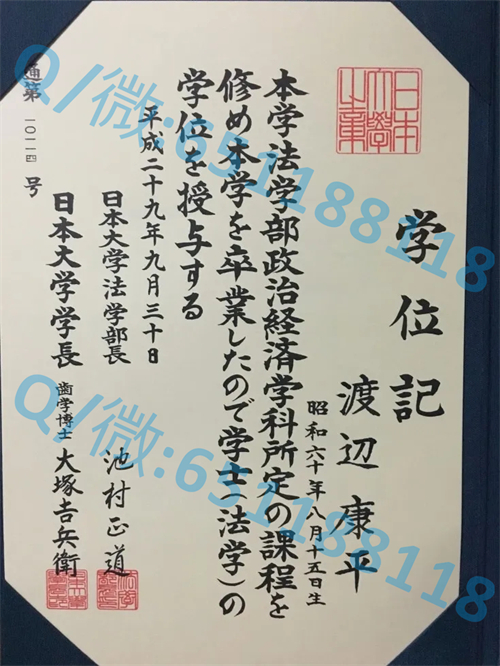 学位記
渡辺康平
昭和六十年八月十五日生
本学法学部政治経済学科所定の課程を
修め本学を卒業したので学士(法学)の
学位を授与する
平成二十九年九月三十日
日本大学法学部長 池村正道
日本大学学長 歯学博士 大塚吉兵衛
通第 一〇一一四 号
日本大學之章
Q/微:651188118
Q/微:651188118